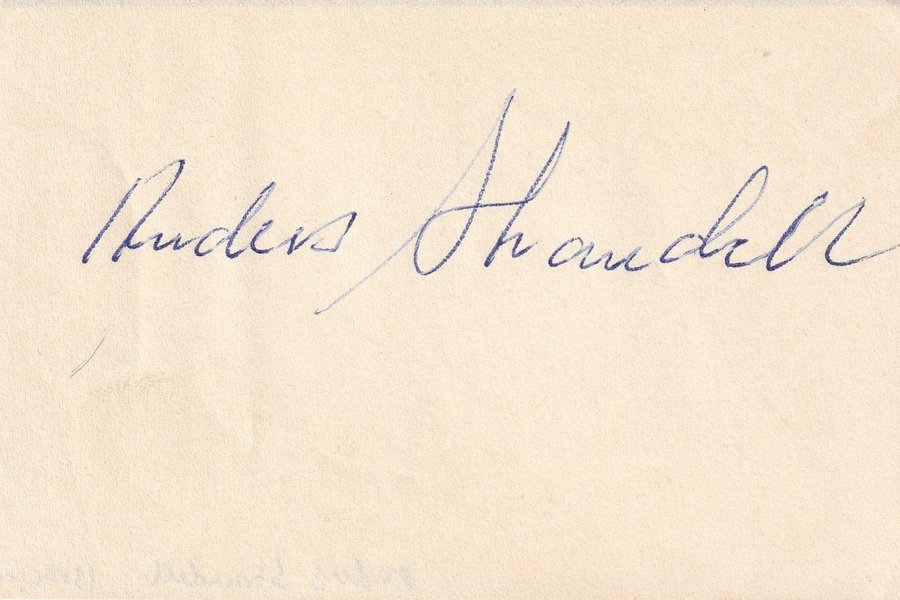 Anders Strandell